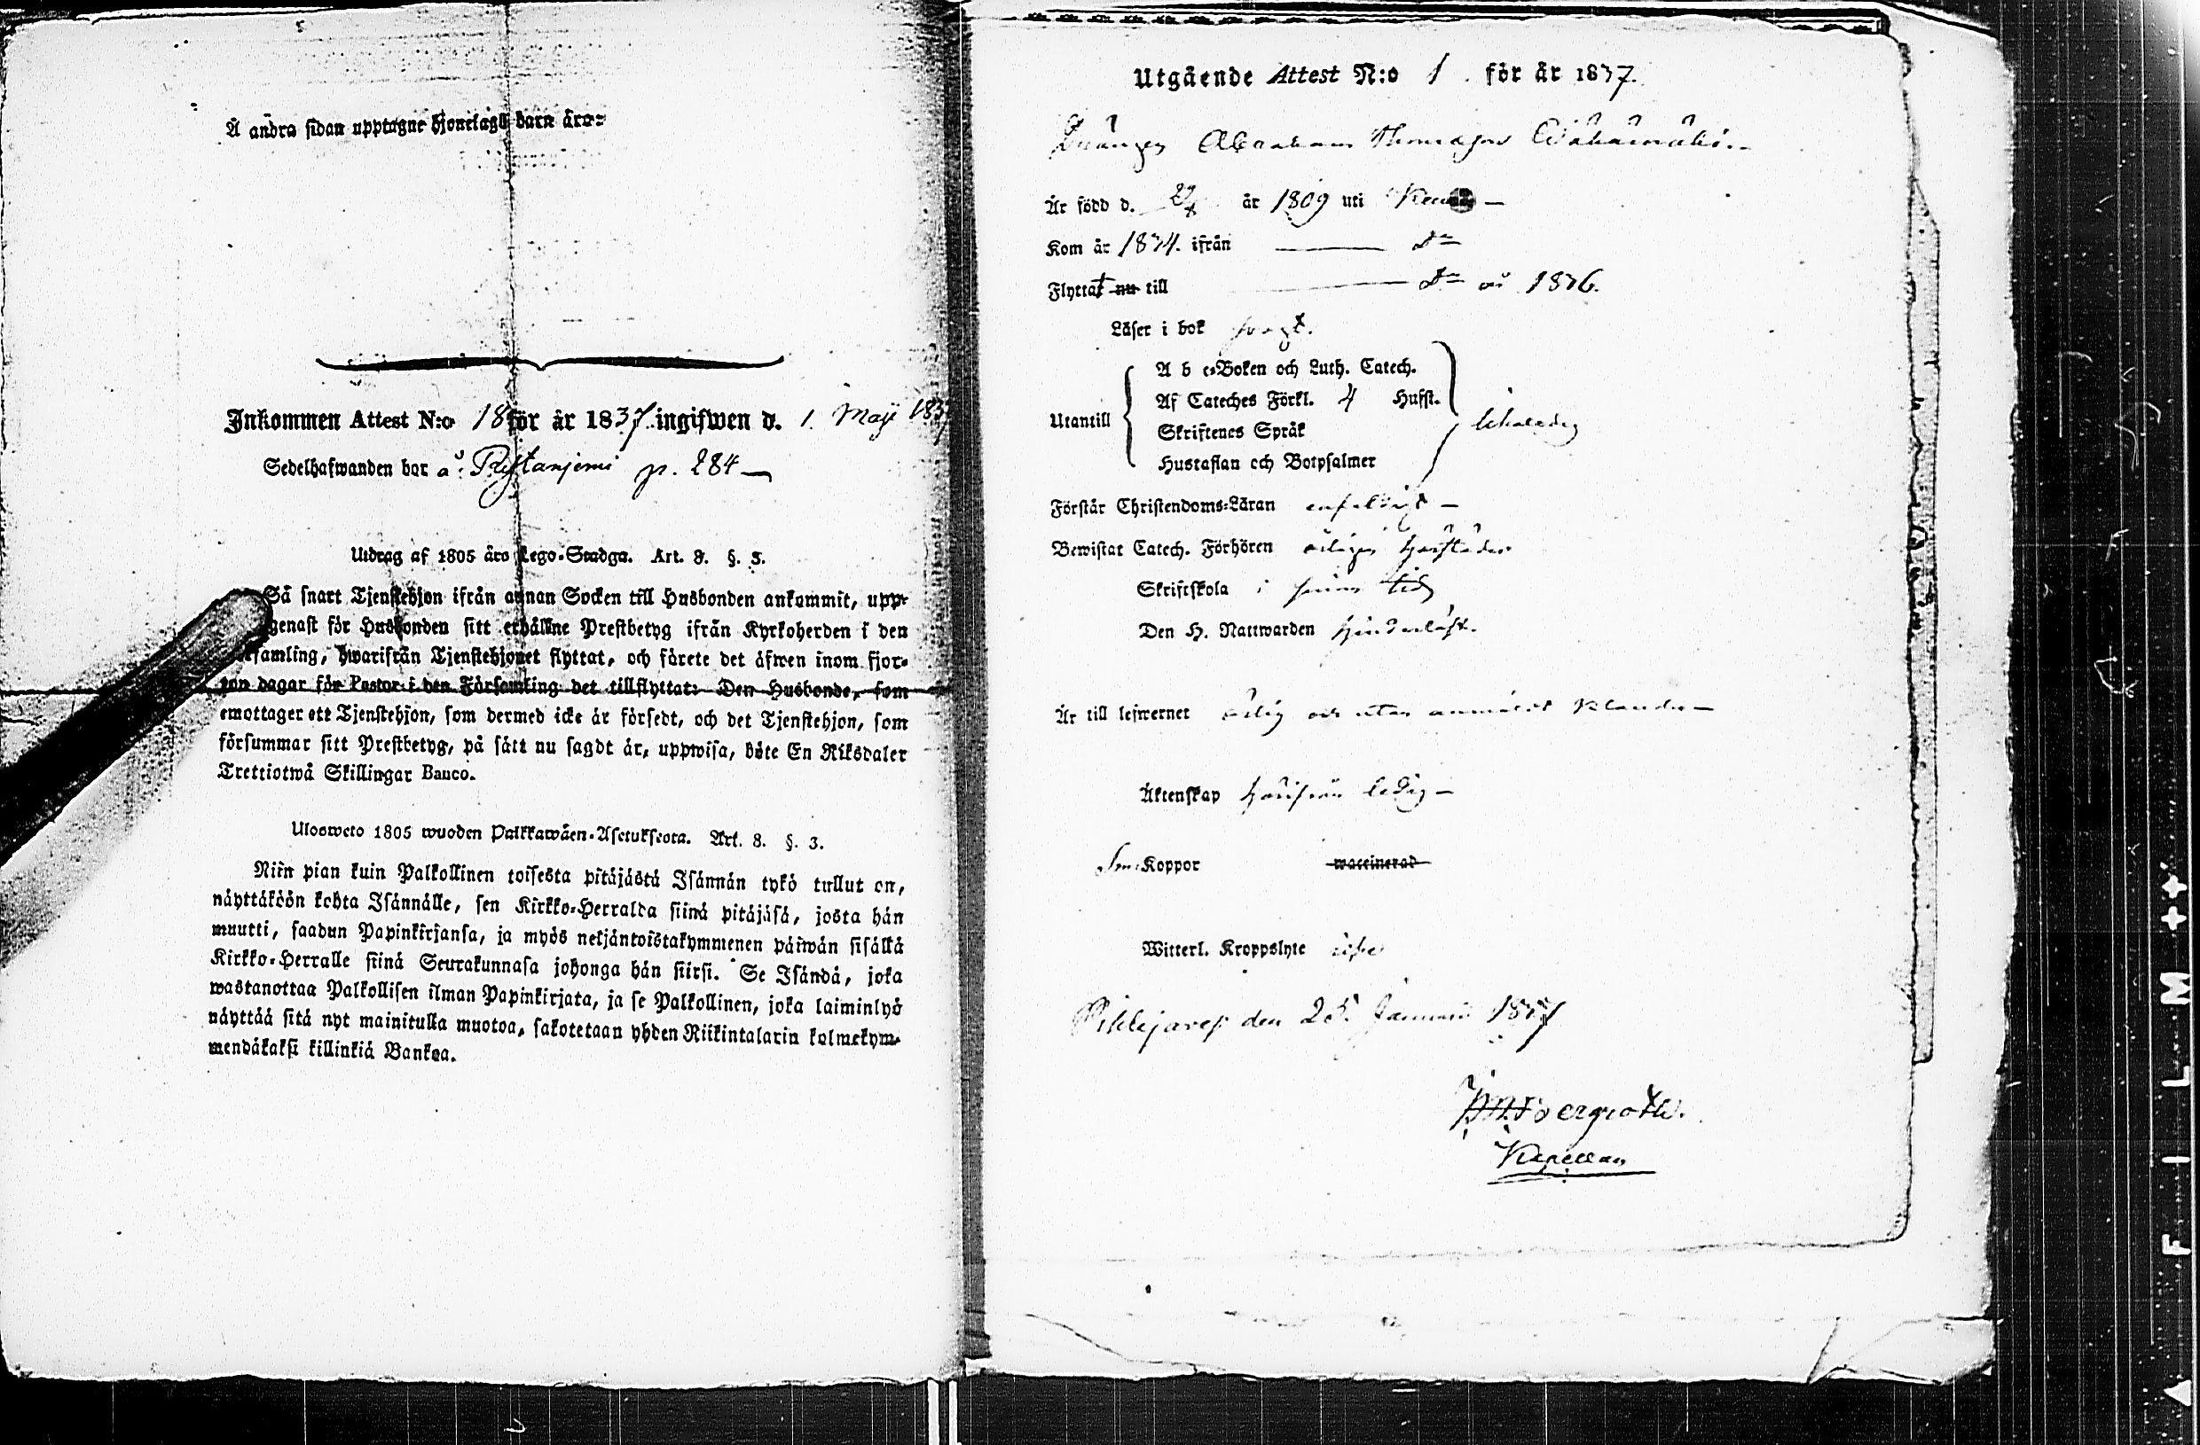 Å andra sidan upptagne hjonelags barn äro:
Inkommen Attest N:o 18 för år 1837 ingifwen d. 1 Maji 1837
Sedelhafwanden bor å Ristanjemi p. 284 —
Utdrag af 1805 års Lego-Stadga. Art. 8. §. 3.
Så snart Tjenstehjon ifrån annan Socken till Husbonden ankommit, upp-
genast för Husbonden sitt erhållne Prestbetyg ifrån Kyrkoherden i den
samling, hwarifrån Tjenstehjonet flyttat, och förete det äfwen inom fjor-
ton dagar för Pastor i den Församling det tillflyttat: Den Husbonde, som
emottager ett Tjenstehjon, som dermed icke är försedt, och det Tjenstehjon, som
försummar sitt Prestbetyg, på sätt nu sagdt är, uppwisa, böte En Riksdaler
Trettiotwå Skillingar Banco.
Ulosweto 1805 wuoden Palkkawäen-Asetuksesta. Art. 8. §. 3.
Niin pian kuin Palkollinen toisesta pitäjästä Isännän tykö tullut on,
näyttäköön kohta Isännälle, sen Kirkko-Herralda siinä pitäjäsä, josta hän
muutti, saadun Papinkirjansa, ja myös neljäntoistakymmenen päiwän sisällä
Kirkko-Herralle siinä Seurakunnasa johonga hän siirsi. Se Isändä, joka
wastanottaa Palkollisen ilman Papinkirjata, ja se Palkollinen, joka laiminlyö
näyttää sitä nyt mainitulla muotoa, sakotetaan yhden Riikintalarin kolmekym-
mendäkaksi killinkiä Bankoa.
Utgående Attest N:o 1 för år 1837.
Drängen Abraham Thomasson
Är född d. år 1809 uti
Kom år 1834. ifrån — Do —
Flyttat nu till — Do år 1836.
Läser i bok svagt.
Utantill
A b c-Boken och Luth. Catech.
Af Cateches Förkl. 4 Hufst.
Skriftenes Språk
Hustaflan och Botpsalmer
likaledes
Förstår Christendoms-Läran enfaldigt —
Bewistat Catech. Förhören årligen härstädes
Skriftskola i sinom tid
Den H. Nattwarden hinderlöst.
Är till lefwernet ärlig och utan anmärkt klander —
Äktenskap härifrån ledig —
Koppor waccinerad
Witterl. Kroppslyte
Pihlajavesi den 25. Januarii 1837
Bergroth.
Kapellan